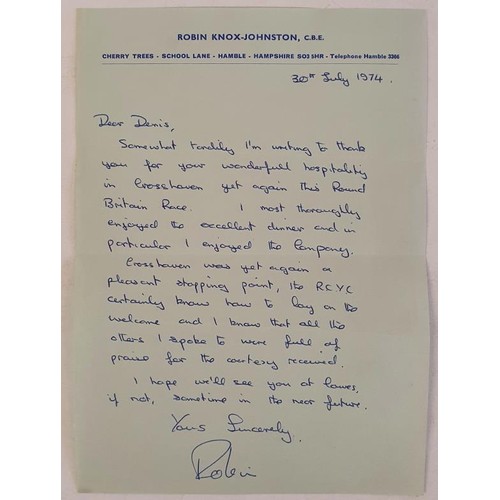 ROBIN KNOX-JOHNSTON, C.B.E.
CHERRY TREES - SCHOOL LANE - HAMBLE - HAMPSHIRE SO3 5HR - Telephone Hamble 3306
30th July 1974.
Dear Denis,
Somewhat tardily I'm writing to thank
you for your wonderfull hospitality
in Crosshaven yet again this Round
Britain Race. I most thoroughly
enjoyed the excellent dinner and in
particular I enjoyed the Company.
Crosshaven was yet again a
pleasant stopping point, the RCYC
certainly know how to lay on the
welcome and I know that all the
others I spoke to were full of
praise for the courtesy received.
I hope we'll see you at Cowes,
if not, sometime in the near future.
Yours Sincerely,
Robin